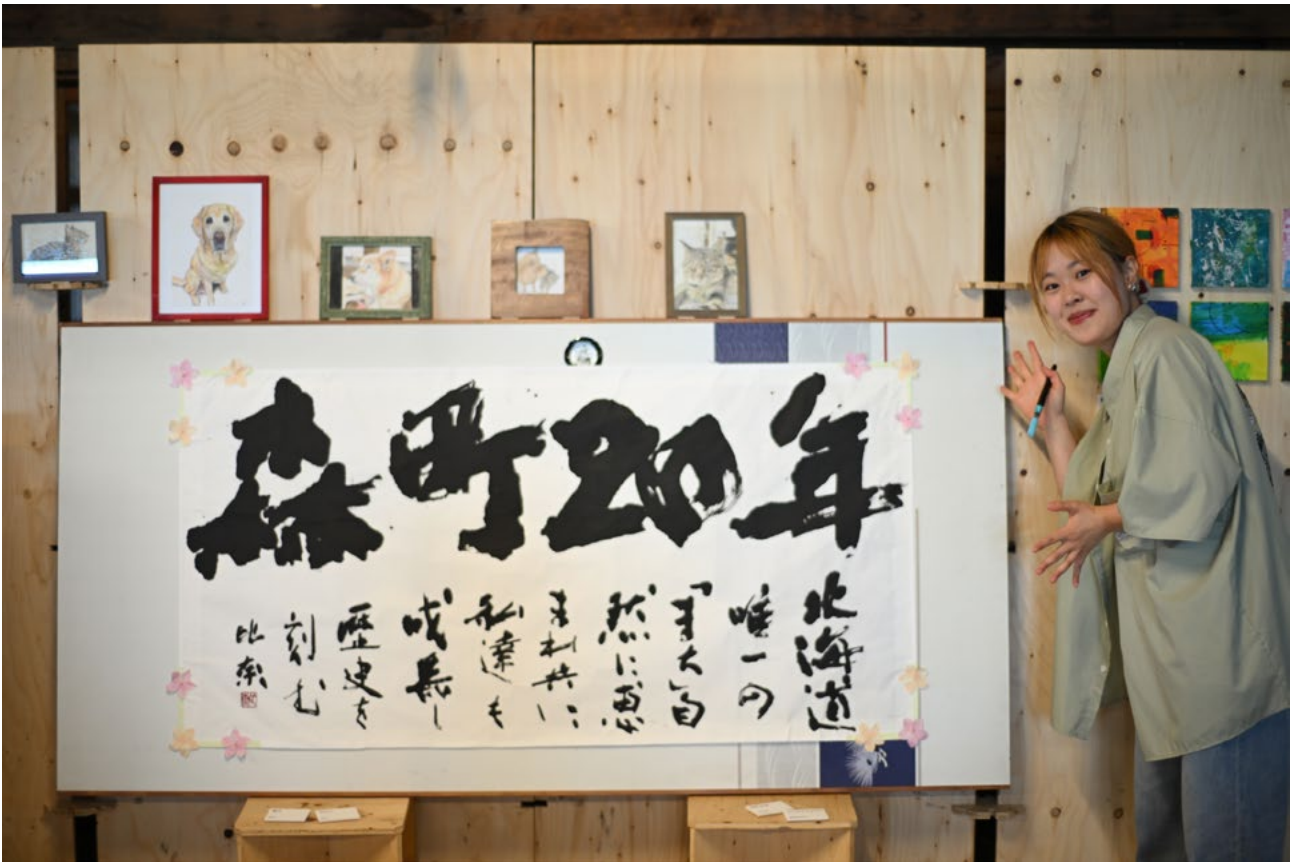 森町20年
北海道
唯一の
大自
然に恵
まれ共に
私達も
成長し
歴史を
刻む
比奈